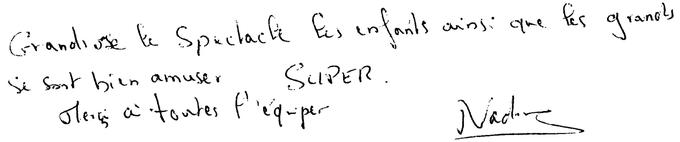 Grandiose le Spectacle les enfants ainsi que les grands
se sont bien amuser SUPER.
Merci a toutes l'équiper